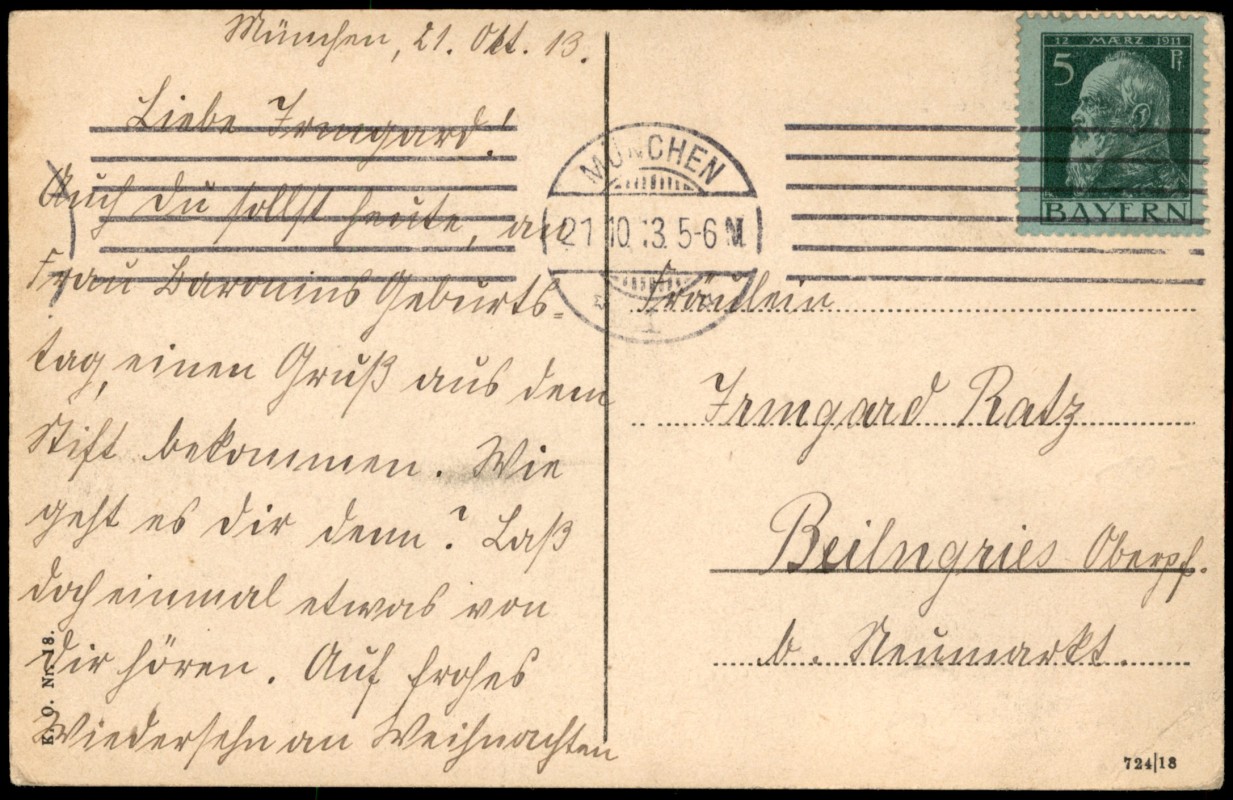 München, 21. Okt. 13.
Liebe Irmgard!
Auch du sollst heute, an
Frau Baronins Geburts-
tag, einen Gruß aus dem
Stift bekommen. Wie
geht es dir denn? Laß
doch einmal etwas von
dir hören. Auf frohes
Wiedersehn an Weihnachten
K. O. Nr. 18.
MÜNCHEN
21 10 13. 5-6 N.
1
12 MÆRZ 1911
5 Pf
BAYERN
Fräulein
Irmgard Ratz
Beilngries Oberpf.
b. Neumarkt.
724|18